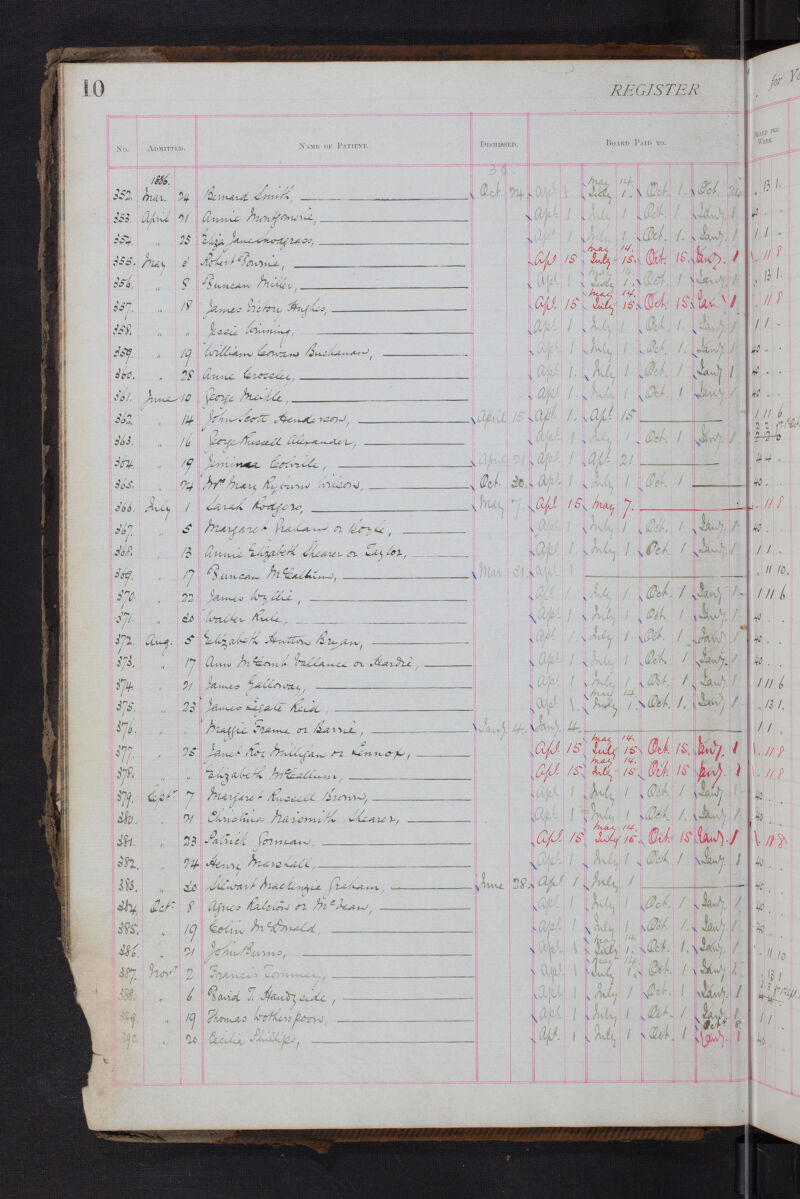 10 REGISTER for
No. ADMITTED. NAME OF PATIENT. DISMISSED. BOARD PAID TO. BOARD PER WEEK.
1886. 38. May 14.
352. Mar. 24 Bernard Smith, Oct. 24 Apl. 1 July 1. Oct. 1. Oct. 24 13 1.
353. April 21 Annie Montgomerie, Apl. 1 July 1 Oct. 1 Jany. 1 40
354. " 25 Eliza Jane Snodgrass, Apl. 1 July 1 Oct. 1. Jany. 1 1 1
May 14.
355. May 3 Robert Bownie, Apl. 15 July 15. Oct. 15. Jany. 1 11 8
May 14.
356. " 8 Duncan Miller, Apl. 1 July 1. Oct. 1 Jany. 1 13 1.
May 14.
357. " 18 James Victory Hughes, Apl. 15 July 15 Oct. 15 Jan 1 11 8
358. " " Jessie Winning, Apl. 1 July 1 Oct. 1 Jany. 1 1 1
359. " 19 William Cowan Buchanan, Apl. 1 July 1 Oct. 1. Jany. 1 40
360. " 28 Anne Crossley, Apl. 1. July 1 Oct. 1 Jany. 1 40
361. June 10 George Meikle, Apl. 1 July 1 Oct. 1 Jany. 1 40
362. " 14 John Scott Henderson, April 15 Apl. 1. Apl. 15 1 11 6
363. " 16 George Russell Alexander, Apl. 1 July 1 Oct. 1 Jany. 1
364. " 19 Jemima Colville, April 21 Apl. 1 Apl. 21 44
365. " 24 Mrs Mary Ryburn Wilson, Oct. 30. Apl. 1 July 1 Oct. 1 40
366. July 1 Sarah Rodgers, May 7. Apl. 15 May 7. 11 8
367. " 5 Margaret Graham or Boyle, Apl. 1 July 1 Oct. 1 Jany. 1 40
368. " 13 Annie Elizabeth Shearer or Taylor, Apl. 1. July 1. Oct. 1 Jany. 1 1 1
369. " 17 Duncan McCallum, Mar. 31 Apl. 1 11 10.
370. " 22 James Wyllie, Apl. 1 July 1 Oct. 1 Jany. 1 1 11 6
371. " 30 Walter Rule, Apl. 1 July 1 Oct. 1 Jany. 1 40
372. Aug. 5 Elizabeth Hutton Bryan, Apl. 1. July 1 Oct. 1 Jany. 40
373. " 17 Ann McComb Vallance or Hardie, Apl. 1 July 1 Oct. 1 Jany. 1 40
374. " 21 James Galloway, Apl. 1 July 1 Oct. 1 Jany. 1 1 11 6
May 14
375. " 23 James Legate Reid, Apl. 1. July 1 Oct. 1. Jany. 1 13 1.
376. " " Maggie Frame or Barrie, Jany. 4. Jany. 4. 1 1
May 14.
377. " 25 Janet Roy Milligan or Lennox, Apl. 15 July 15 Oct. 15. Jany. 1 11 8
May 14.
378. " " Elizabeth McCallum, Apl. 15 July 15 Oct. 15 Jany. 1 11 8
379. Sept. 7 Margaret Russell Brown, Apl. 1 July 1 Oct. 1 Jany. 1 40
380. " 21 Christina Naismith Shearer, Apl. 1 July 1 Oct. 1. Jany. 1 40
May 14.
381. " 23 Patrick Gorman, Apl. 15 July 15 Oct. 15 Jany. 1 11 8
382. " 24 Henry Marshall, Apl. 1 July 1 Oct. 1 Jany. 1 40
383. " 30 Stewart Mackenzie Graham, June 28 Apl. 1 July 1 40
384. Oct. 8 Agnes Ralston or McVean, Apl. 1 July 1 Oct. 1 Jany. 1 40
385. " 19 Colin McDonald, Apl. 1 July 1 Oct. 1 Jany. 1 40
May 14
386. " 21 John Burns, Apl. 1 July 1. Oct. 1. Jany. 1 11 10
May 14.
387. Novr. 2 Francis Tominey, Apl. 1 July 1. Oct. 1 Jany. 13 1
388. " 6 David T. Handyside, Apl. 1 July 1 Oct. 1 Jany. 1
389. " 19 Thomas Wotherspoon, Apl. 1 July 1 Oct. 1 Jany. 1 1 1
Oct. 8
390. " 20 Cecilia Phillips, Apl. 1 July 1 Oct. 1 Jany. 1 40